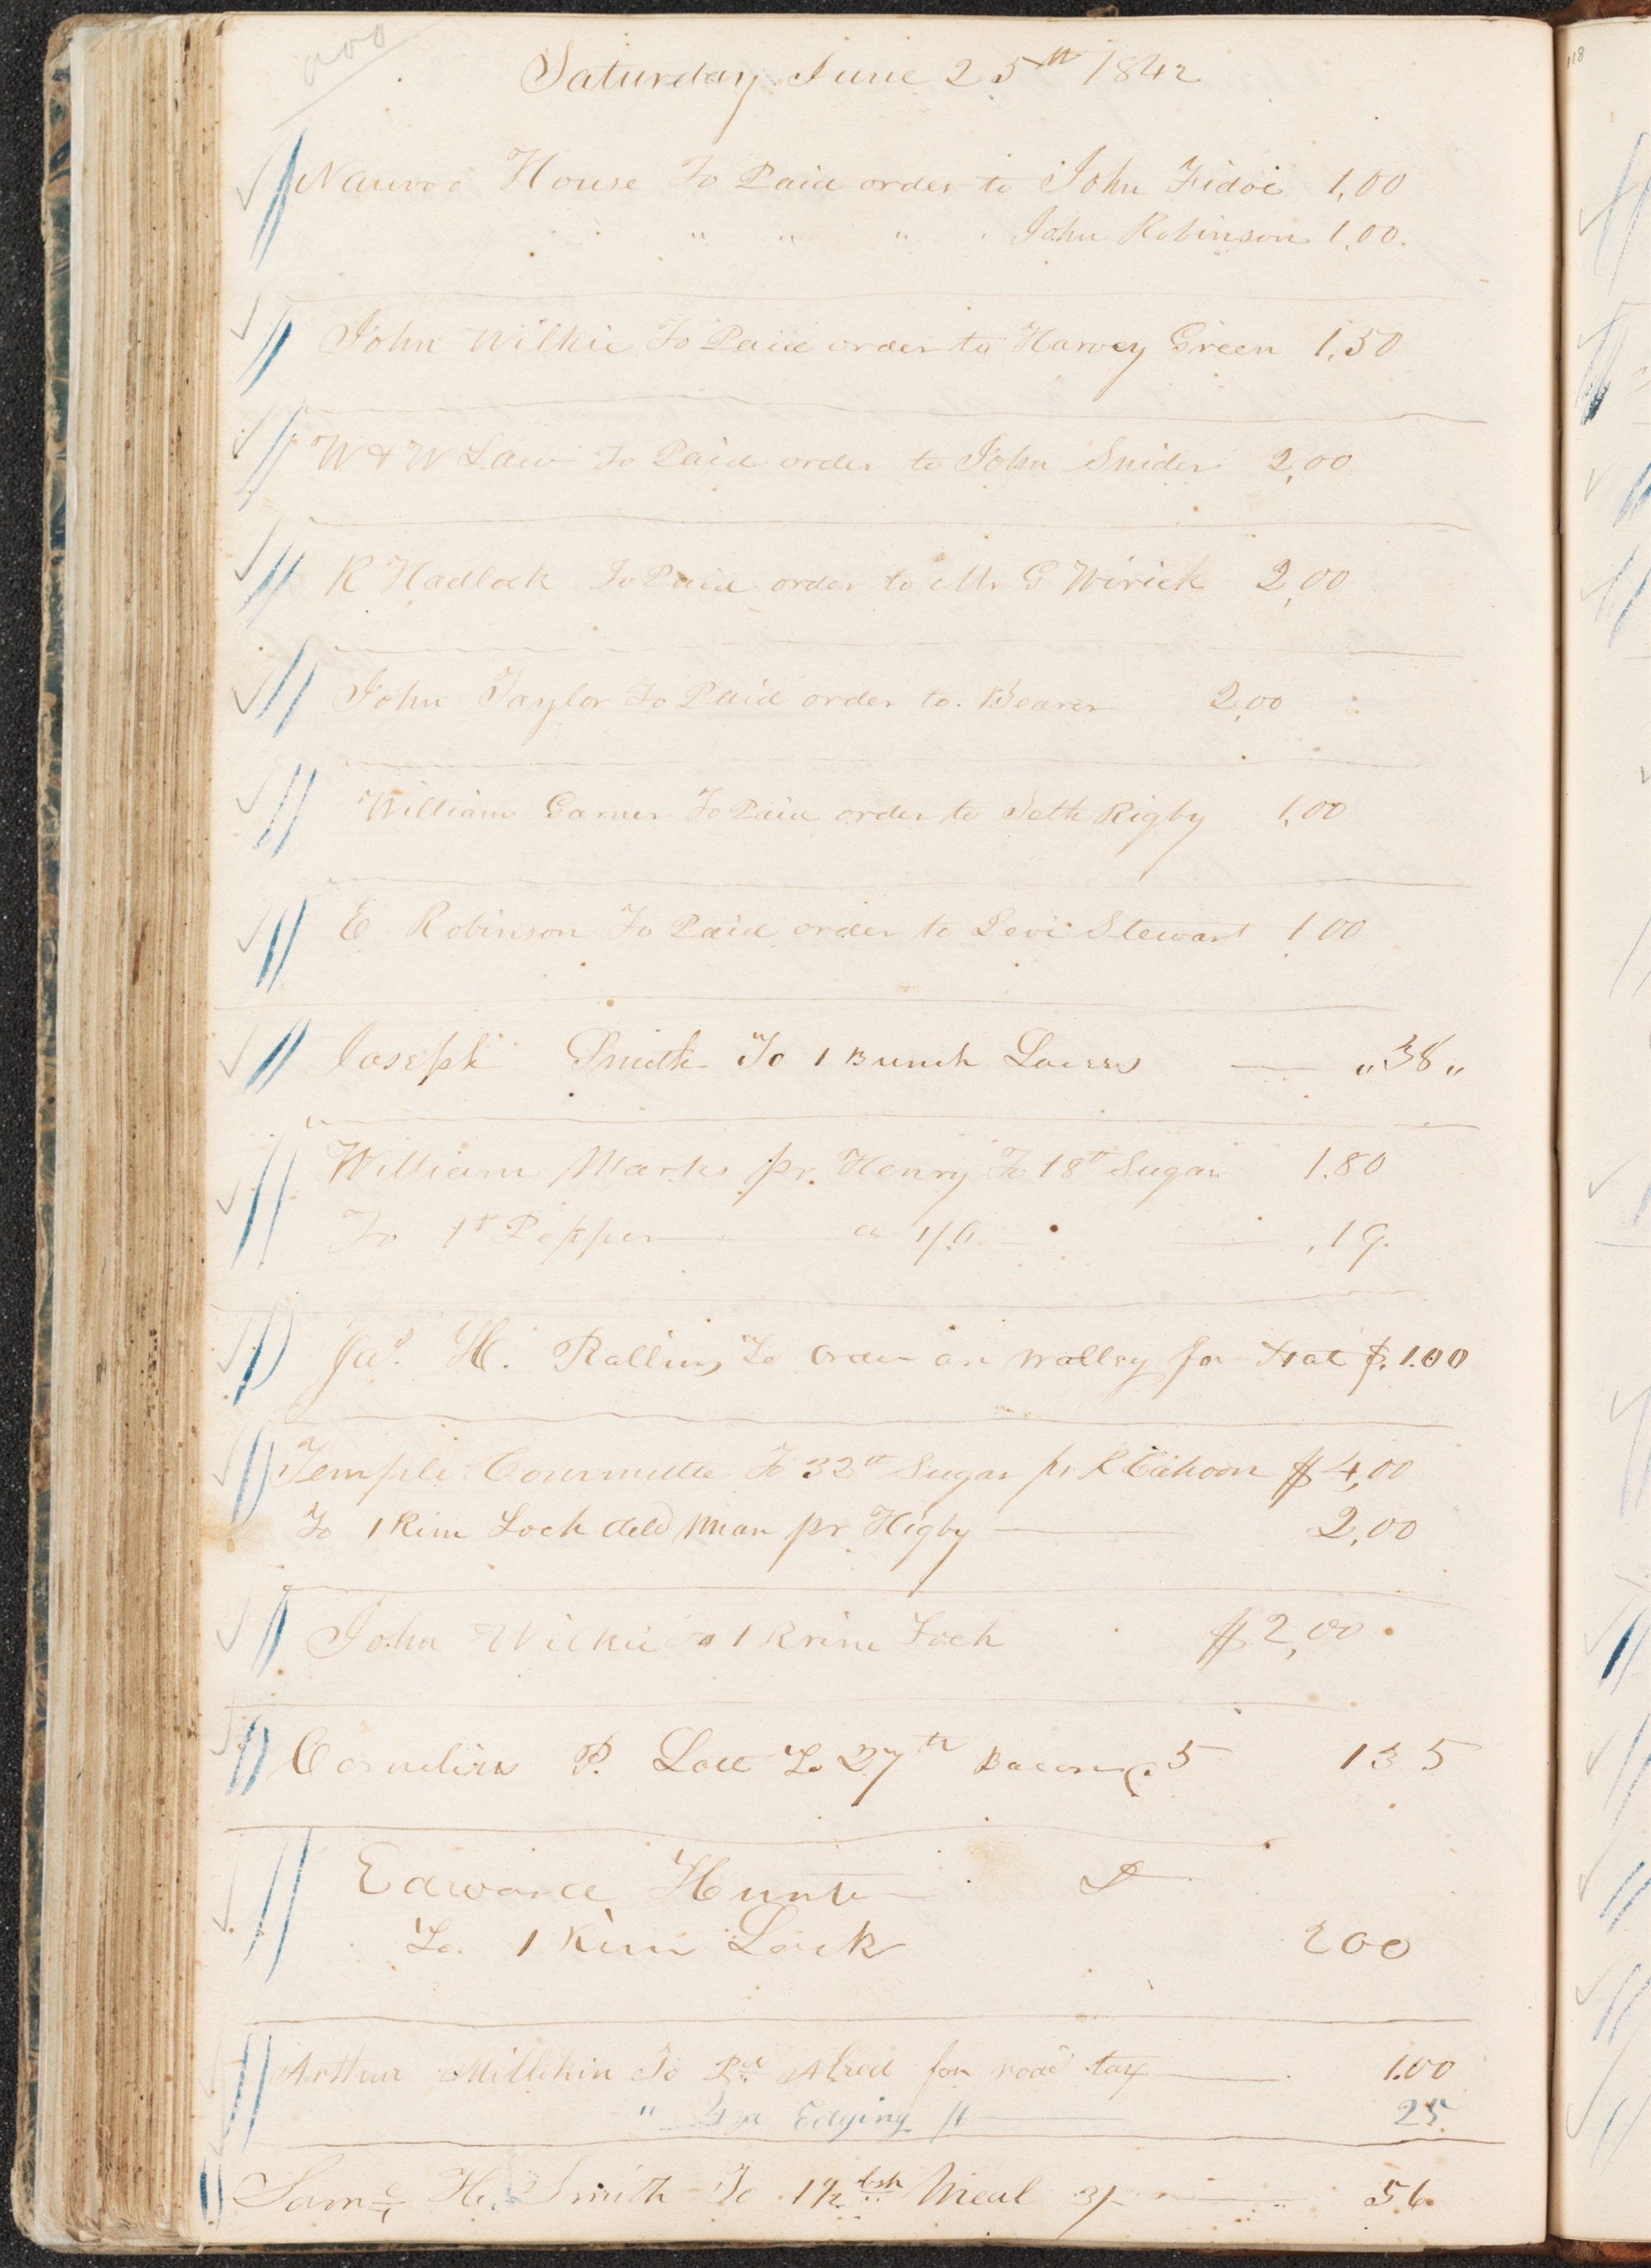 Saturday June 25th 1842
Nauvoo House To Paid order to John Fidoe 1,00
" " " " John Robinson 1,00.
John Wilkie To Paid order to Harvey Green 1,50
W & W Law To Paid order to John Snider 2,00
R Hadlock To Paid order to Mr G Wirick 2,00
John Taylor To Paid order to Bearer 2,00
William Garner To Paid order to Seth Rigby 1,00
E Robinson To Paid order to Levi Stewart 1 00
Joseph Smith To 1 Bunch — „38„
William Marks pr. Henry To 18 lb Sugar 1.80
To 1 lb Pepper — a 1/6 — ,19.
Jas. H. Rollins To Order on for Hat $ 1.00
Temple Committee To 32 lb Sugar pr R Cahoon $ 4,00
To 1 Rim Lock deld Man pr Higby — 2,00
John Wilkie To 1 Rrim Lock $ 2,00
Cornelius P. Lott To 27 lb Bacon 5 1 35
Edward Hunter D
To 1 Rim Lock 200
Arthur Millikin To Pd Alred for road tax — 1.00
" Edging — 25
Saml H. Smith To 1 1/2 bsh Meal 3/ — 56
118